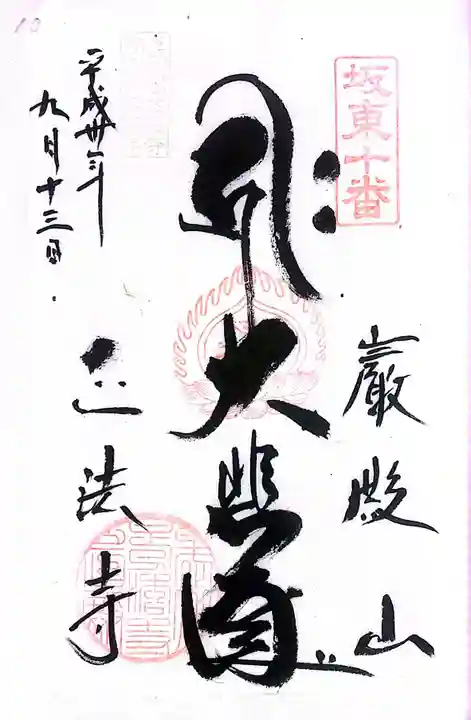 坂東十番
巌殿山
大悲閣
正法寺
平成廿三年
九月十三日
10